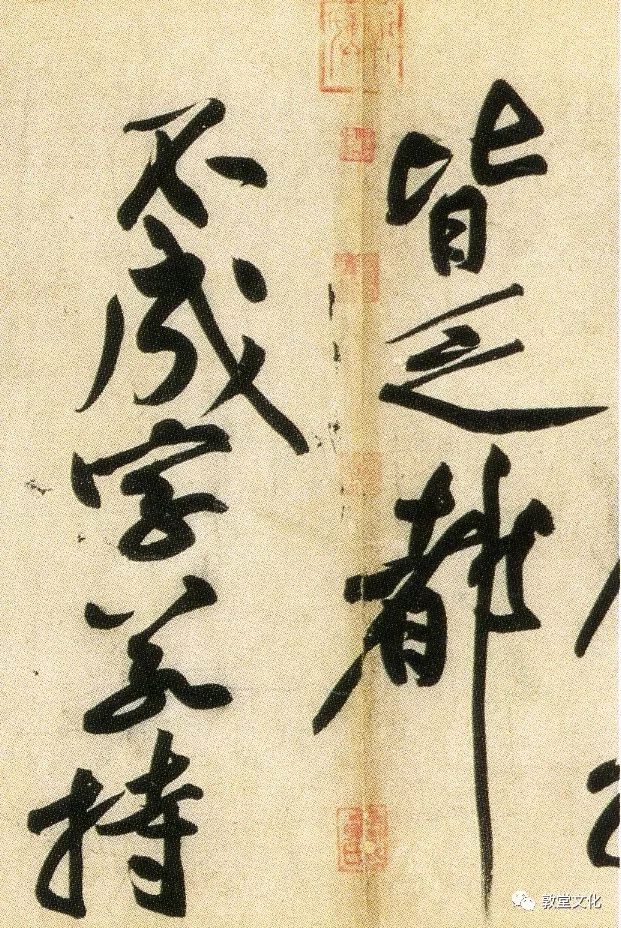 皆乏都
不成字若持
敦堂文化